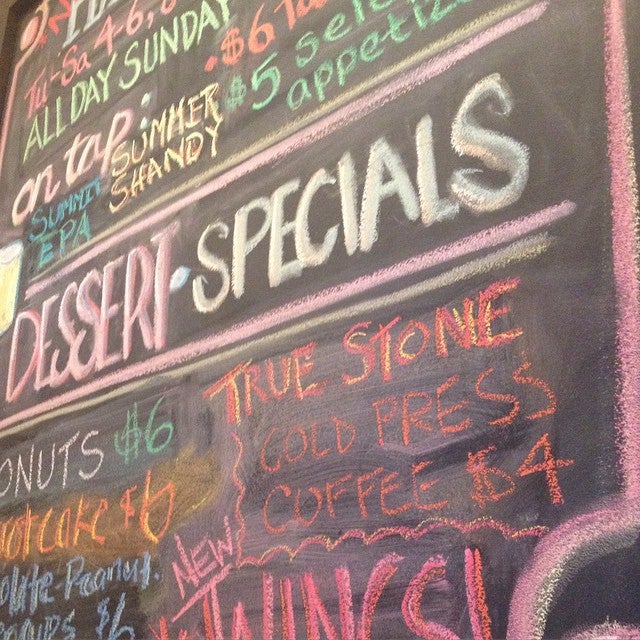 Tu-Sa 4-6,
ALL DAY SUNDAY
• $6
$5 sele
appetiz
on tap:
SUMMIT
EPA
SUMMER
SHANDY
DESSERT • SPECIALS
ONUTS $6
rot cake $6
olate-Peanut.
$6
TRUE STONE
COLD PRESS
COFFEE $4
NEW
WINGS!